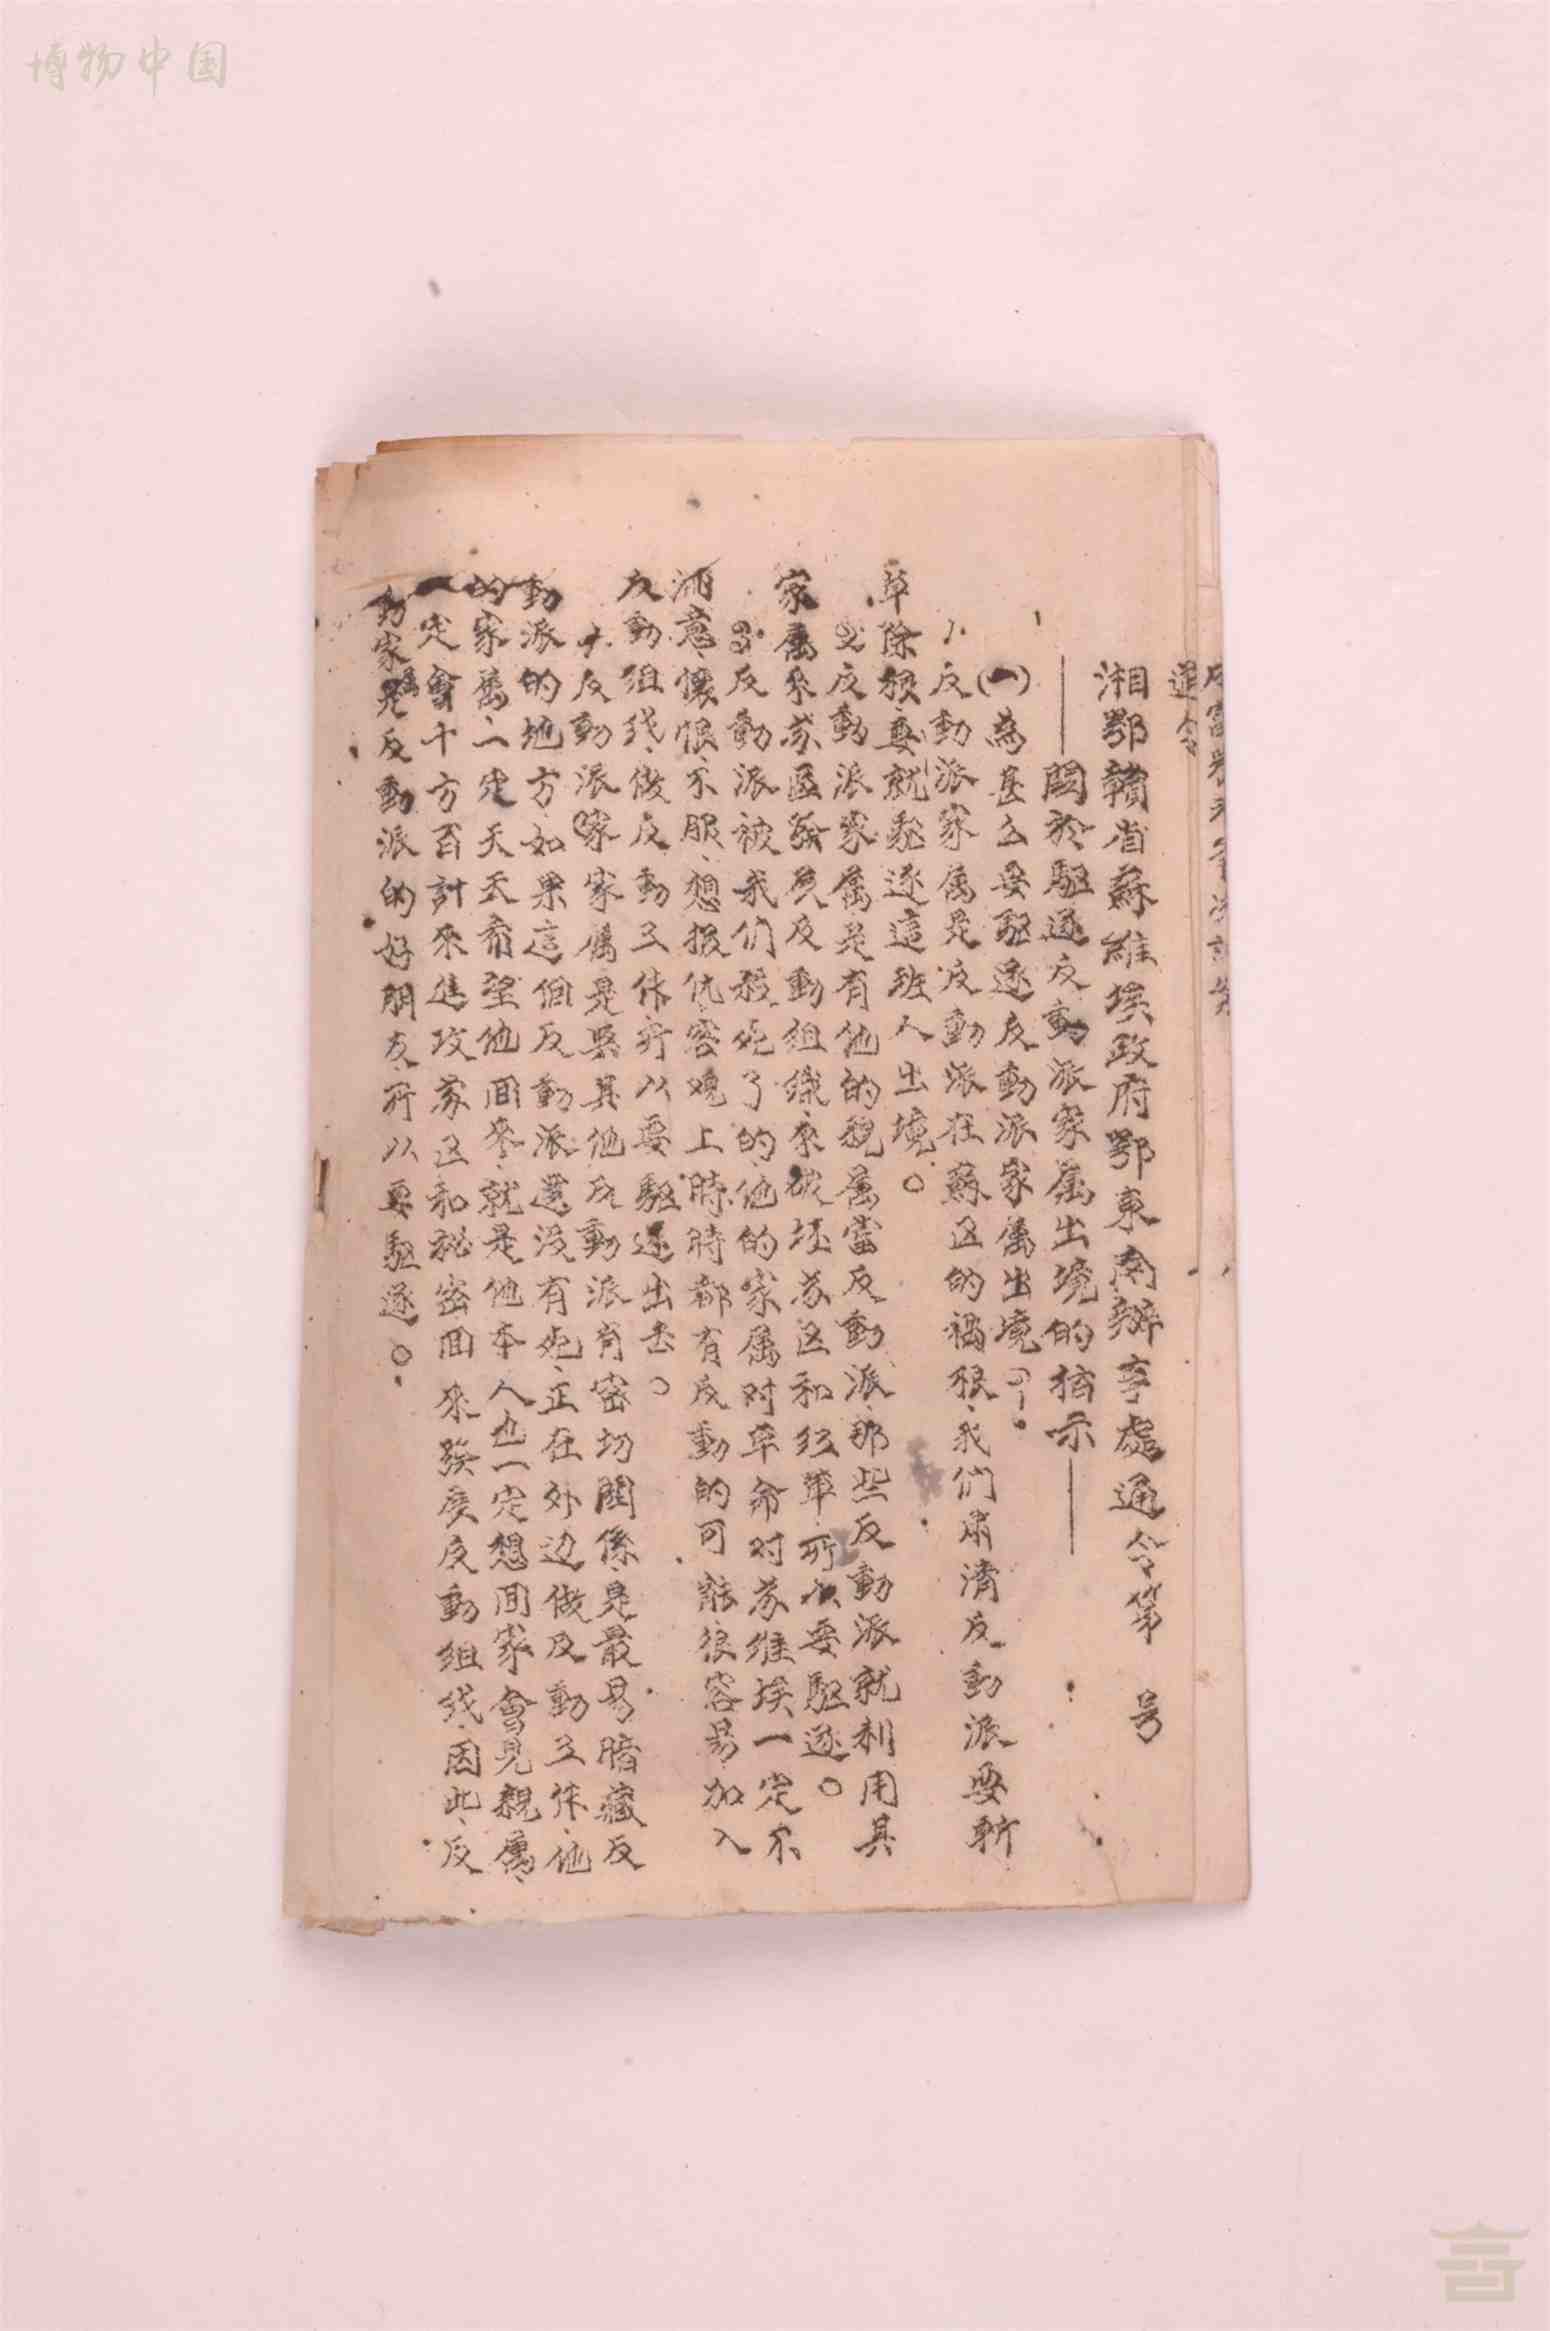 博物中国
通令
湘鄂贛省蘇維埃政府鄂東南辦事處通令第 号
——關於駆逐反動派家属出境的指示——
(一)為甚么要駆逐反動派家属出境?
1.反動派家属是反動派在蘇区的禍根、我们肃清反動派要斩
草除根、要就駆逐這班人出境。
2.反動派家属是有他的親属當反動派、那些反動派就利用其
家属來苏區發展反動組織來破坏苏区和红軍、所以要駆逐。
3.反動派被我们殺死了的、他的家属对革命对苏维埃一定不
满意、懷恨、不服、想报仇、客观上時時都有反動的可能、很容易加入
反動组织、做反動工作、所以要駆逐出去。
4.反動派家家属是與其他反動派有密切關係、是最易暗藏反
動派的地方、如果這個反動派還没有死、正在外边做反動工作、他
的家属一定天天希望他回來、就是他本人也一定想回家會見親属、
一定會千方百計來進攻苏区和秘密回來發展反動组织、因此、反
動家属是反動派的好朋友、所以要駆逐。